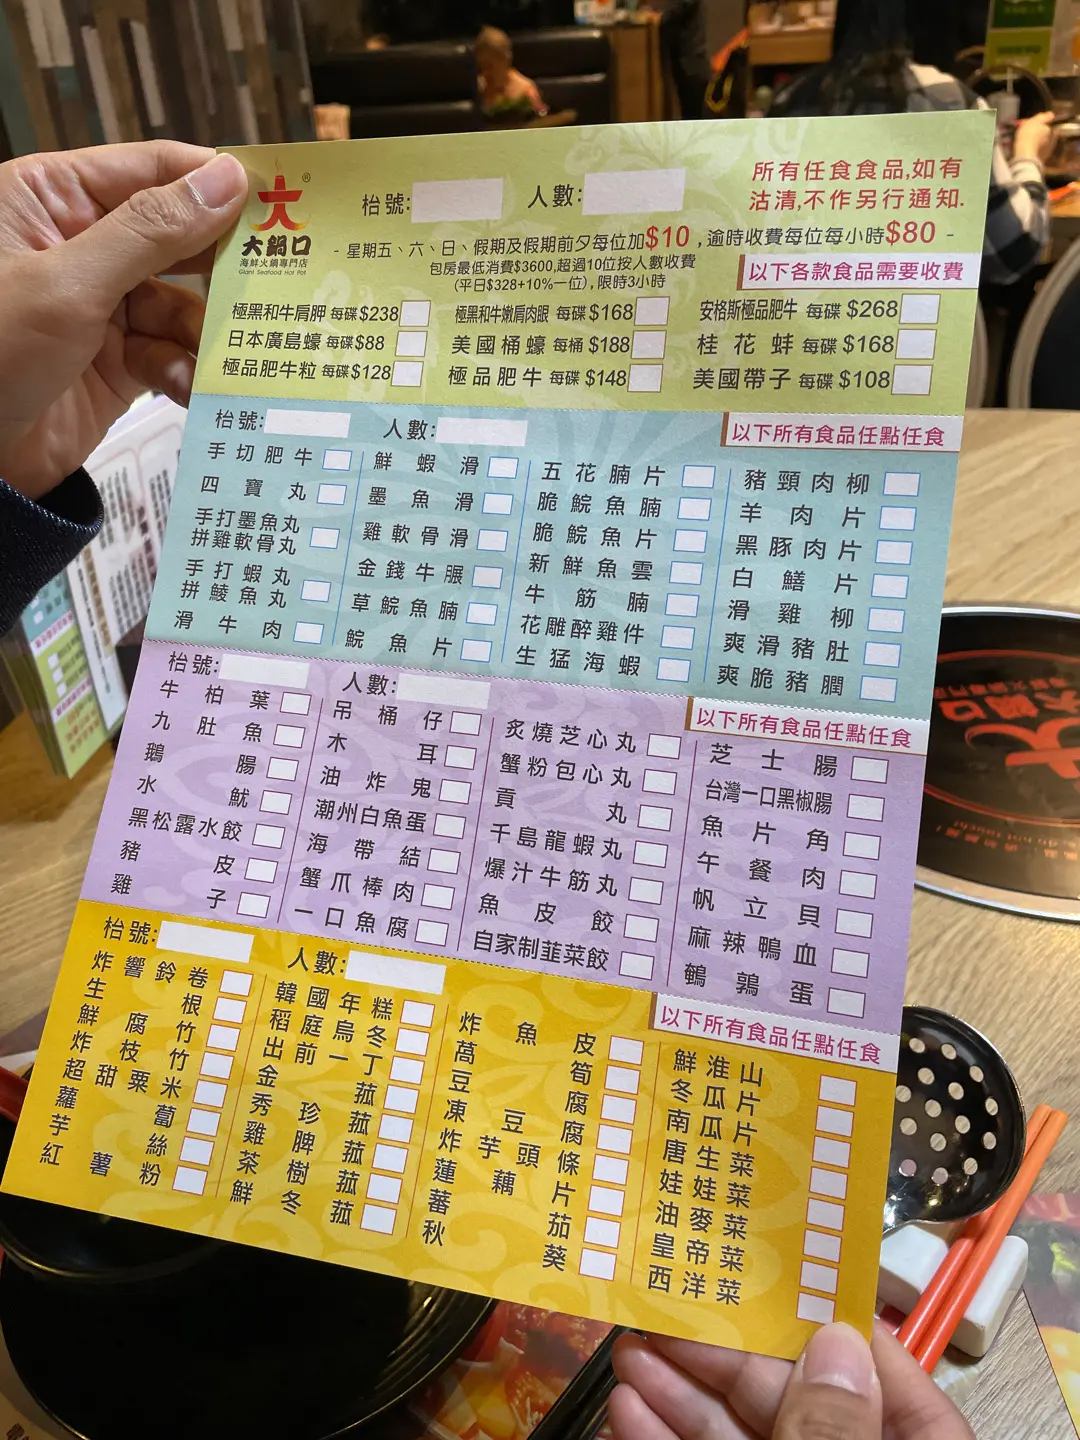 大鍋口
海鮮火鍋專門店
Giant Seafood Hot Pot
®
枱號: 人數:
所有任食食品,如有
沽清,不作另行通知.
- 星期五、六、日、假期及假期前夕每位加$10 , 逾時收費每位每小時$80 -
包房最低消費$3600,超過10位按人數收費
(平日$328+10%一位) , 限時3小時
以下各款食品需要收費
極黑和牛肩胛 每碟$238
日本廣島蠔 每碟$88
極品肥牛粒 每碟$128
極黑和牛嫩肩肉眼 每碟 $168
美國桶蠔 每桶 $188
極品肥牛 每碟 $148
安格斯極品肥牛 每碟 $268
桂花蚌 每碟 $168
美國帶子 每碟 $108
枱號: 人數:
以下所有食品任點任食
手切肥牛
四寶丸
手打墨魚丸
拼雞軟骨丸
手打蝦丸
拼鯪魚丸
滑牛肉
鮮蝦滑
墨魚滑
雞軟骨滑
金錢牛𦟌
草鯇魚腩
鯇魚片
五花腩片
脆鯇魚腩
脆鯇魚片
新鮮魚雲
牛筋腩
花雕醉雞件
生猛海蝦
豬頸肉柳
羊肉片
黑豚肉片
白鱔片
滑雞柳
爽滑豬肚
爽脆豬膶
枱號: 人數:
以下所有食品任點任食
牛柏葉
九肚魚
鵝腸
水魷
黑松露水餃
豬皮
雞子
吊桶仔
木耳
油炸鬼
潮州白魚蛋
海帶結
蟹爪棒肉
一口魚腐
炙燒芝心丸
蟹粉包心丸
貢丸
千島龍蝦丸
爆汁牛筋丸
魚皮餃
自家制韮菜餃
芝士腸
台灣一口黑椒腸
魚片角
午餐肉
帆立貝
麻辣鴨血
鵪鶉蛋
枱號: 人數:
以下所有食品任點任食
炸響鈴卷
生根
鮮腐竹
炸枝竹
超甜粟米
蘿蔔
芋絲
紅薯粉
韓國年糕
稻庭烏冬
出前一丁
金菇
秀珍菇
雞脾菇
茶樹菇
鮮冬菇
炸魚皮
萵筍
豆腐
凍豆腐
炸芋頭條
蓮藕片
蕃茄
秋葵
鮮淮山
冬瓜片
南瓜片
唐生菜
娃娃菜
油麥菜
皇帝菜
西洋菜